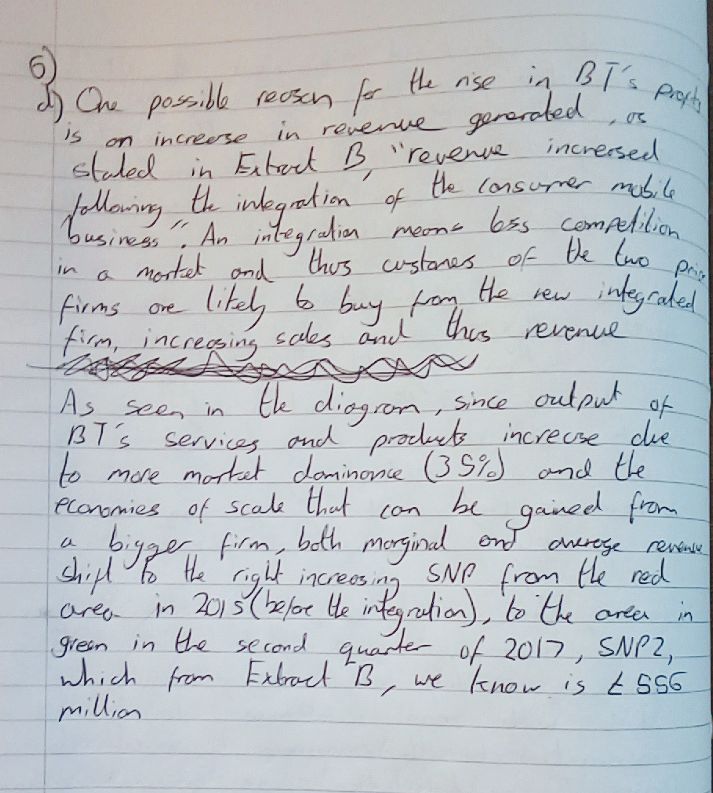 6)
d) One possible reason for the rise in BT's profits
is an increase in revenue generated, as
stated in Extract B, "revenue increased
following the integration of the consumer mobile
business". An integration means less competition
in a market and thus customers of the two prior
firms are likely to buy from the new integrated
firm, increasing sales and thus revenue
As seen in the diagram, since output of
BT's services and products increase due
to more market dominance (35%) and the
economies of scale that can be gained from
a bigger firm, both marginal and average revenue
shift to the right increasing SNP from the red
area in 2015 (before the integration), to the area in
green in the second quarter of 2017, SNP2,
which from Extract B, we know is £556
million